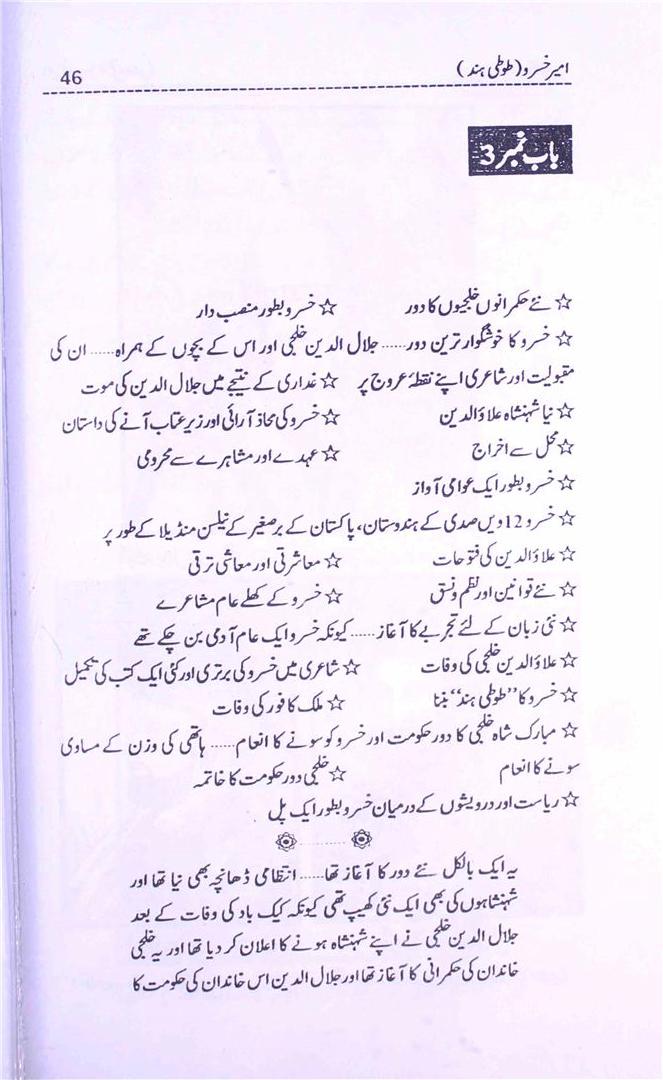 امیر خسرو (طوطی ہند)
46
باب نمبر 3
☆ نئے حکمرانوں خلجیوں کا دور ☆ خسرو بطور منصب دار
☆ خسرو کا خوشگوار ترین دور...... جلال الدین خلجی اور اس کے بچوں کے ہمراہ...... ان کی
مقبولیت اور شاعری اپنے نقطۂ عروج پر ☆ غداری کے نتیجے میں جلال الدین کی موت
☆ نیا شہنشاہ علاؤ الدین ☆ خسرو کی محاذ آرائی اور زیر عتاب آنے کی داستان
☆ محل سے اخراج ☆ عہدے اور مشاہرے سے محرومی
☆ خسرو بطور ایک عوامی آواز
☆ خسرو 12 ویں صدی کے ہندوستان، پاکستان کے برصغیر کے نیلسن منڈیلا کے طور پر
☆ علاؤ الدین کی فتوحات ☆ معاشرتی اور معاشی ترقی
☆ نئے قوانین اور نظم و نسق ☆ خسرو کے کھلے عام مشاعرے
☆ نئی زبان کے لئے تجربے کا آغاز...... کیونکہ خسرو ایک عام آدمی بن چکے تھے
☆ علاؤ الدین خلجی کی وفات ☆ شاعری میں خسرو کی برتری اور کئی ایک کتب کی تکمیل
☆ خسرو کا ”طوطی ہند“ بننا ☆ ملک کافور کی وفات
☆ مبارک شاہ خلجی کا دور حکومت اور خسرو کو سونے کا انعام...... ہاتھی کی وزن کے مساوی
سونے کا انعام ☆ خلجی دور حکومت کا خاتمہ
☆ ریاست اور درویشوں کے درمیان خسرو بطور ایک پل
یہ ایک بالکل نئے دور کا آغاز تھا...... انتظامی ڈھانچہ بھی نیا تھا اور
شہنشاہوں کی بھی ایک نئی کھیپ تھی کیونکہ کیک باد کی وفات کے بعد
جلال الدین خلجی نے اپنے شہنشاہ ہونے کا اعلان کر دیا تھا اور یہ خلجی
خاندان کی حکمرانی کا آغاز تھا اور جلال الدین اس خاندان کی حکومت کا